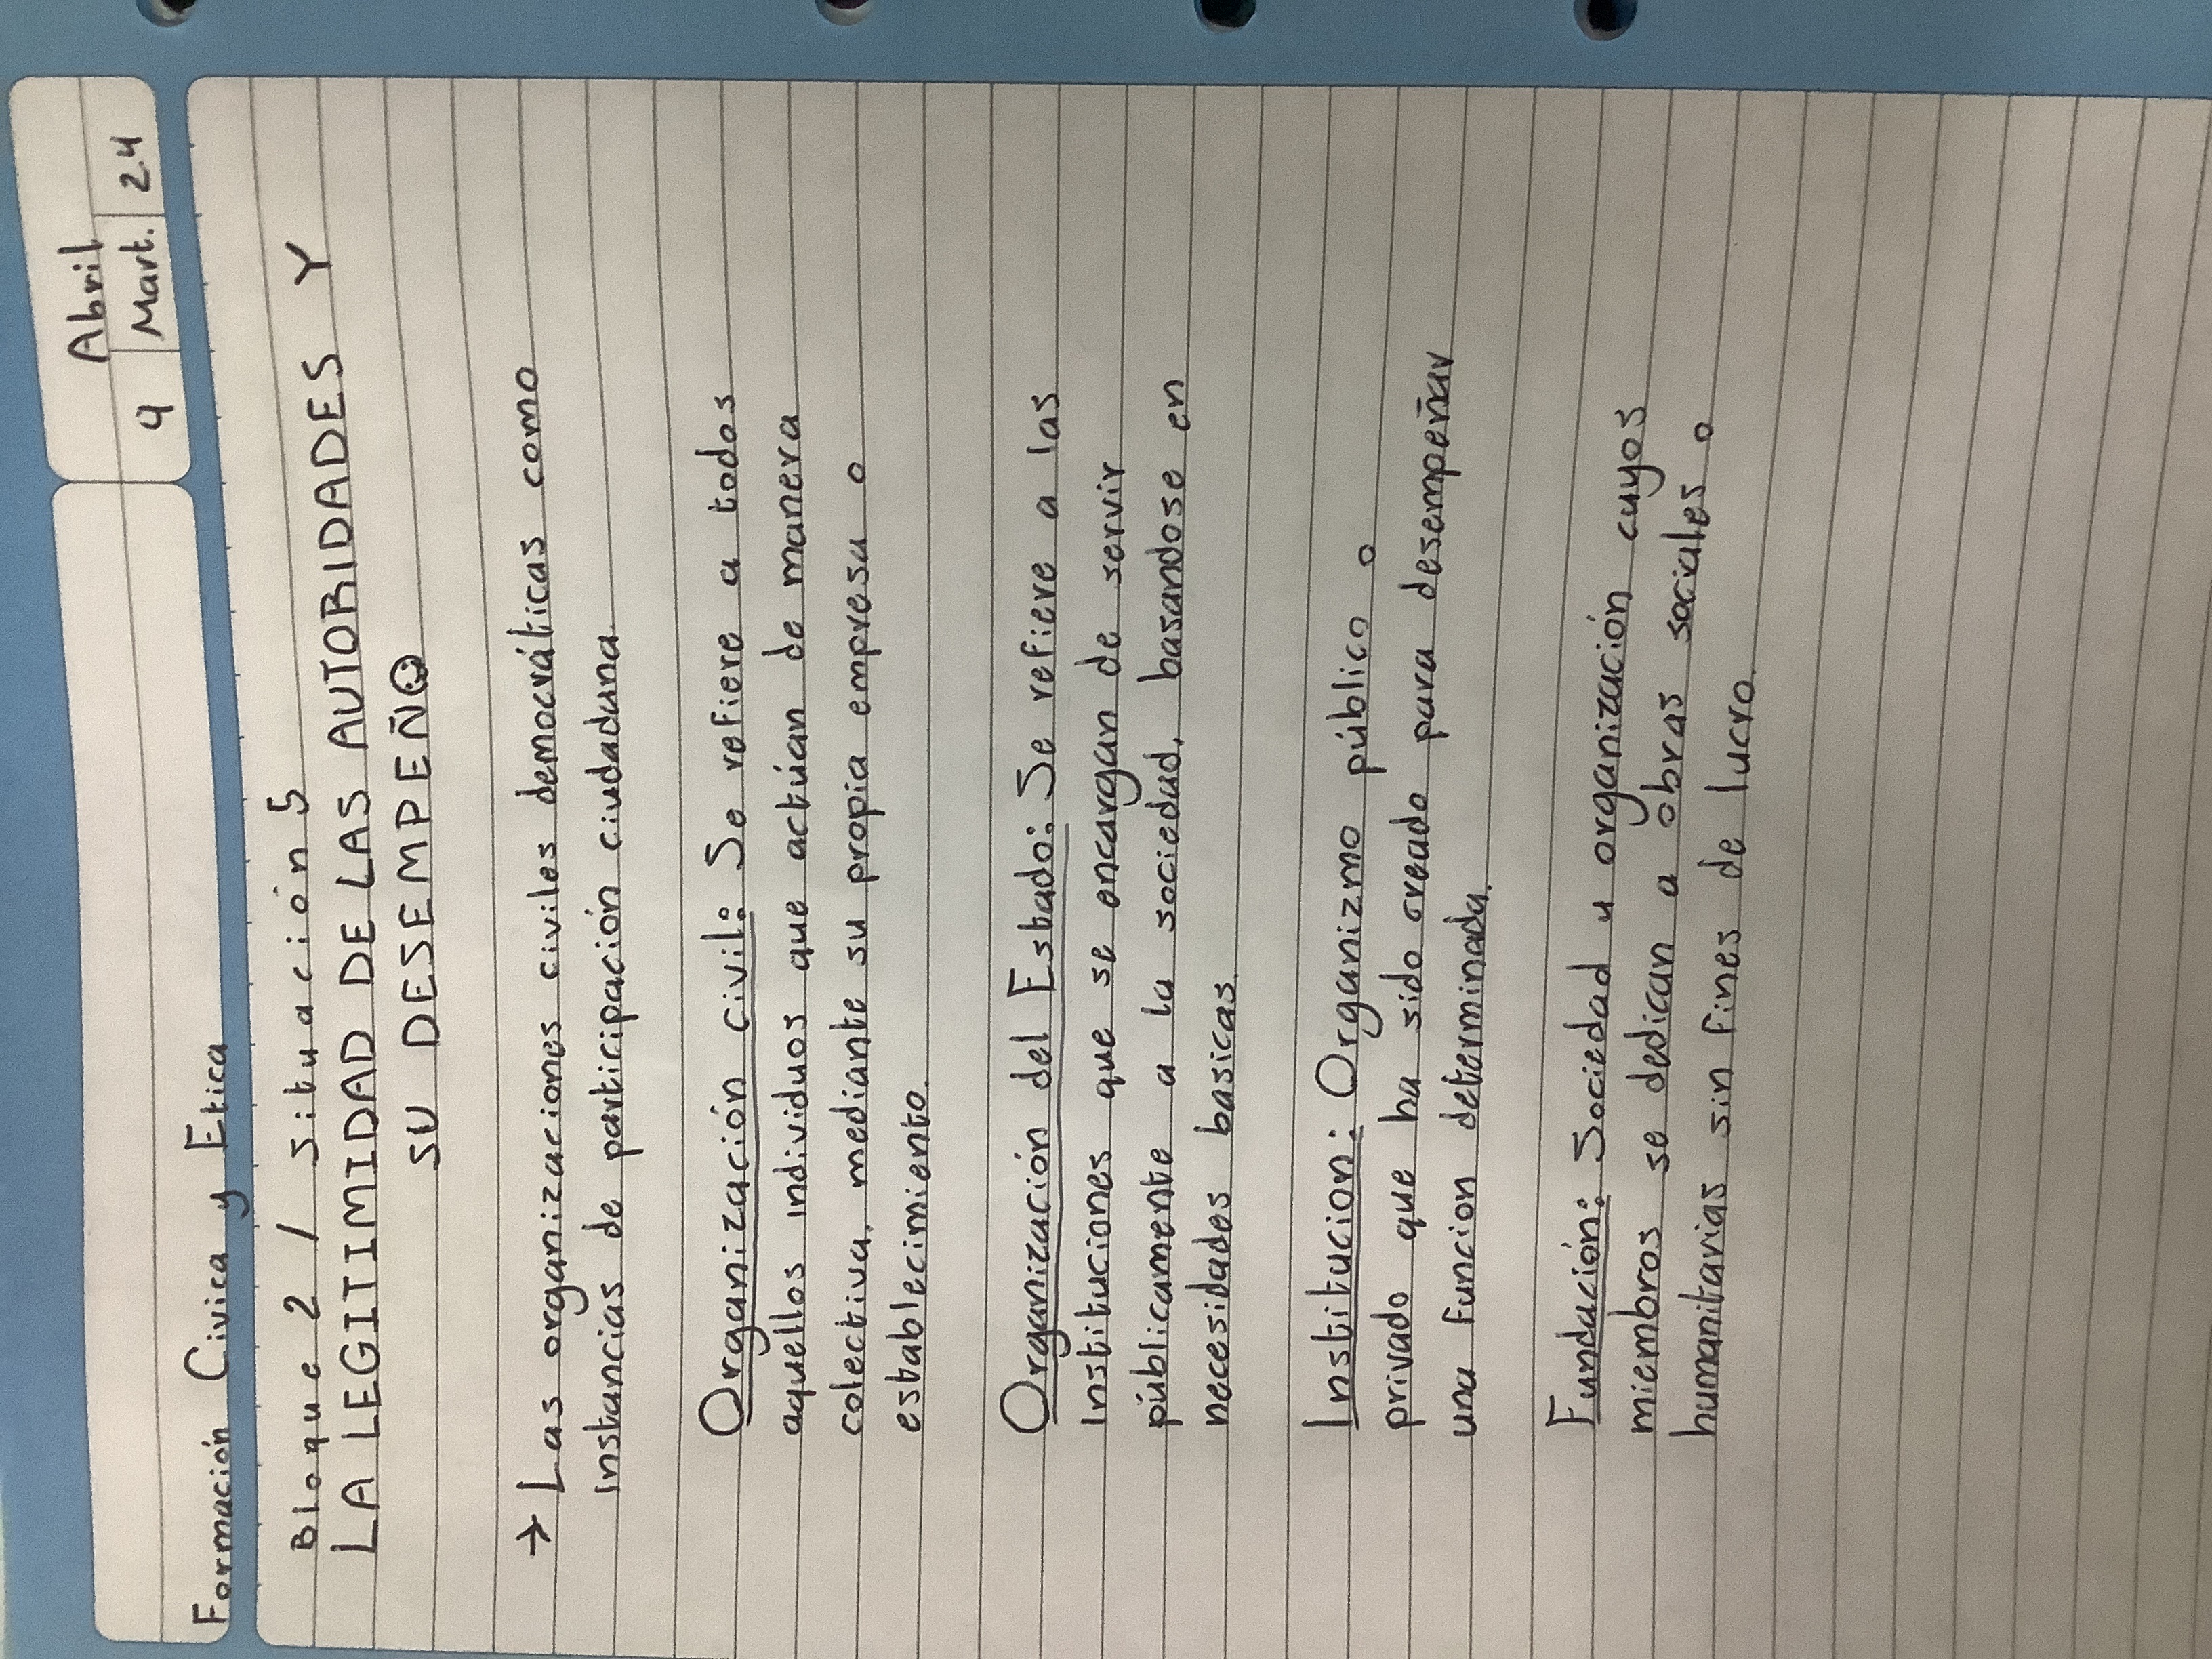 Abril
9 Mart. 24
Formación Civica y Etica
Bloque 2 / situación 5
LA LEGITIMIDAD DE LAS AUTORIDADES Y
SU DESEMPEÑO
→ Las organizaciones civiles democráticas como
instancias de participación ciudadana.
Organización civil: Se refiere a todos
aquellos individuos que actúan de manera
colectiva, mediante su propia empresa o
establecimiento.
Organización del Estado: Se refiere a las
instituciones que se encargan de servir
públicamente a la sociedad, basandose en
necesidades basicas.
Institucion: Organizmo público o
privado que ha sido creado para desempeñar
una funcion determinada.
Fundación: Sociedad u organización cuyos
miembros se dedican a obras sociales o
humanitarias sin fines de lucro.